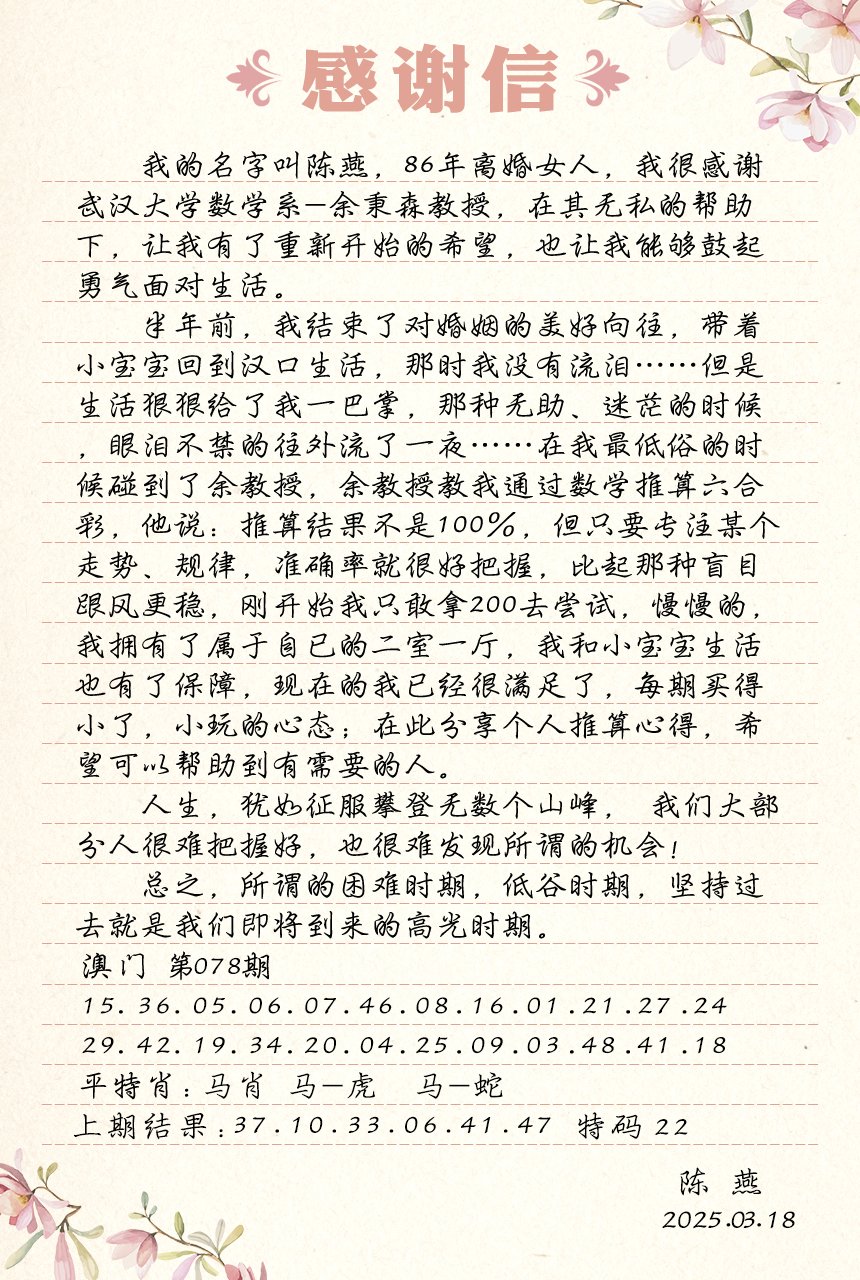 感谢信
我的名字叫陈燕，86年离婚女人，我很感谢
武汉大学数学系-余秉森教授，在其无私的帮助
下，让我有了重新开始的希望，也让我能够鼓起
勇气面对生活。
半年前，我结束了对婚姻的美好向往，带着
小宝宝回到汉口生活，那时我没有流泪……但是
生活狠狠给了我一巴掌，那种无助、迷茫的时候
，眼泪不禁的往外流了一夜……在我最低俗的时
候碰到了余教授，余教授教我通过数学推算六合
彩，他说：推算结果不是100%，但只要专注某个
走势、规律，准确率就很好把握，比起那种盲目
跟风更稳，刚开始我只敢拿200去尝试，慢慢的，
我拥有了属于自已的二室一厅，我和小宝宝生活
也有了保障，现在的我已经很满足了，每期买得
小了，小玩的心态；在此分享个人推算心得，希
望可以帮助到有需要的人。
人生，犹如征服攀登无数个山峰， 我们大部
分人很难把握好，也很难发现所谓的机会！
总之，所谓的困难时期，低谷时期，坚持过
去就是我们即将到来的高光时期。
澳门 第078期
15.36.05.06.07.46.08.16.01.21.27.24
29.42.19.34.20.04.25.09.03.48.41.18
平特肖：马肖 马-虎 马-蛇
上期结果：37.10.33.06.41.47 特码 22
陈 燕
2025.03.18